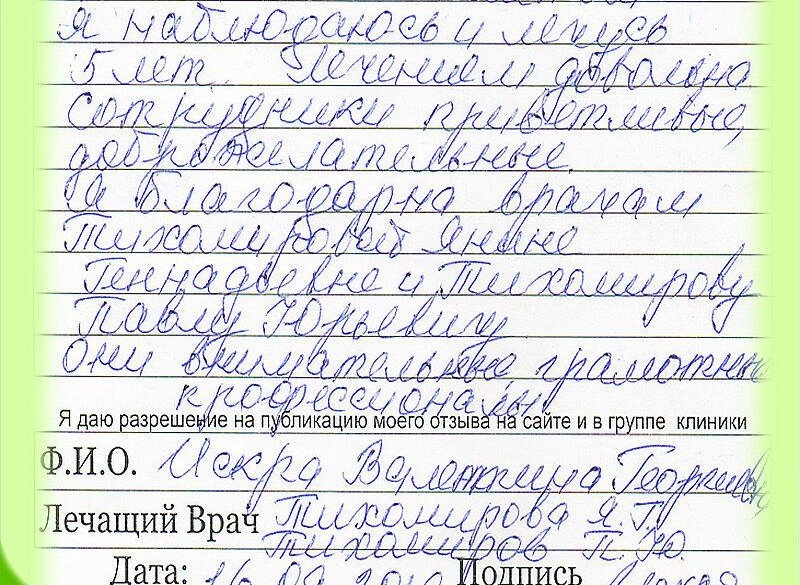 я наблюдаюсь и лечусь
5 лет. Лечением довольна
сотрудники приветливые,
доброжелательные.
Я благодарна врачам
Тихомировой Янине
Геннадьевне и Тихомирову
Павлу Юрьевичу
Они внимательные, грамотные
профессионалы
Я даю разрешение на публикацию моего отзыва на сайте и в группе клиники
Ф.И.О. Искра Валентина Георгиевна
Лечащий Врач Тихомирова Я.Г.
Тихомиров П.Ю.
Дата: 16 09 Подпись